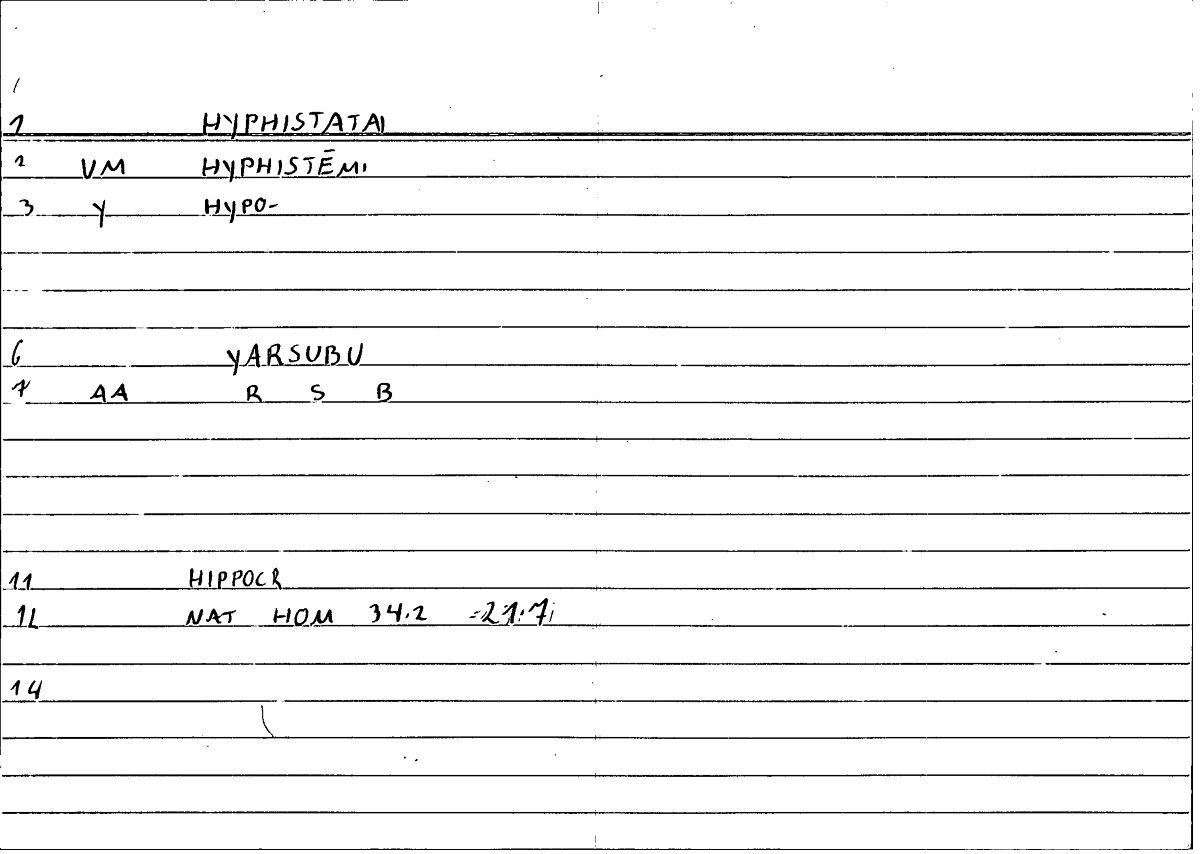 1 HYPHISTATAI
2 VM HYPHISTĒMI
3 Y HYPO-
6 YARSUBU
7 AA R S B
11 HIPPOCR
12 NAT HOM 34.2 =21:7;
14